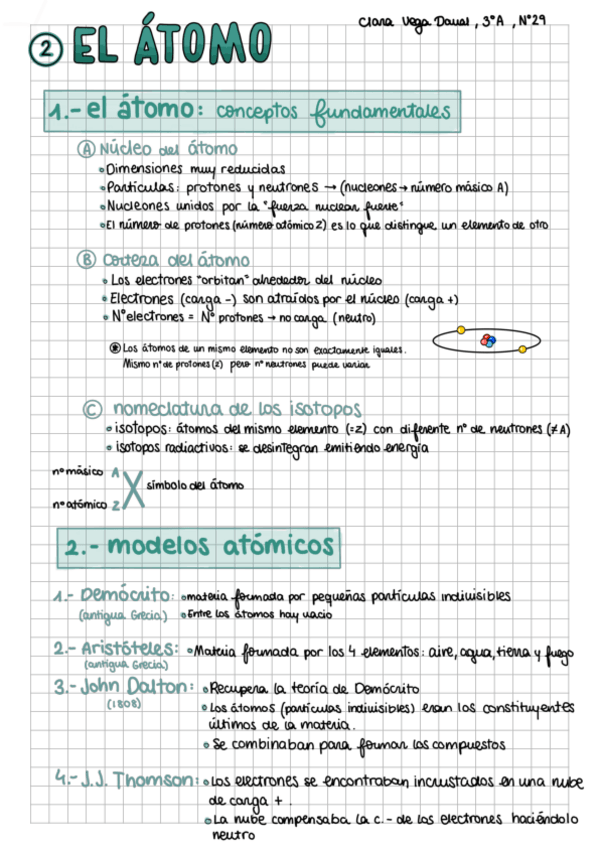 Clara Vega Daual, 3ºA, Nº29
2 EL ÁTOMO
1.- el átomo: conceptos fundamentales
A Núcleo del átomo
• Dimensiones muy reducidas
• Partículas: protones y neutrones → (nucleones → número másico A)
• Nucleones unidos por la "fuerza nuclear fuerte"
• El número de protones (número atómico Z) es lo que distingue un elemento de otro
B Corteza del átomo
• Los electrones "orbitan" alrededor del núcleo
• Electrones (carga -) son atraídos por el núcleo (carga +)
• Nº electrones = Nº protones → no carga (neutro)
Los átomos de un mismo elemento no son exactamente iguales.
Mismo nº de protones (z) pero nº neutrones puede variar
C nomeclatura de los isotopos
• isotopos: átomos del mismo elemento (=z) con diferente nº de neutrones (≠A)
• isotopos radiactivos: se desintegran emitiendo energía
nº másico A
X símbolo del átomo
nº atómico Z
2.- modelos atómicos
1.- Demócrito: • materia formada por pequeñas partículas indivisibles
(antigua Grecia) • Entre los átomos hay vacio
2.- Aristóteles: • Materia formada por los 4 elementos: aire, agua, tierra y fuego
(antigua Grecia)
3.- John Dalton: • Recupera la teoría de Demócrito
(1808) • Los átomos (partículas indivisibles) eran los constituyentes
últimos de la materia.
• Se combinaban para formar los compuestos
4.- J.J. Thomson: • Los electrones se encontraban incrustados en una nube
de carga +.
• La nube compensaba la c.- de los electrones haciéndolo
neutro